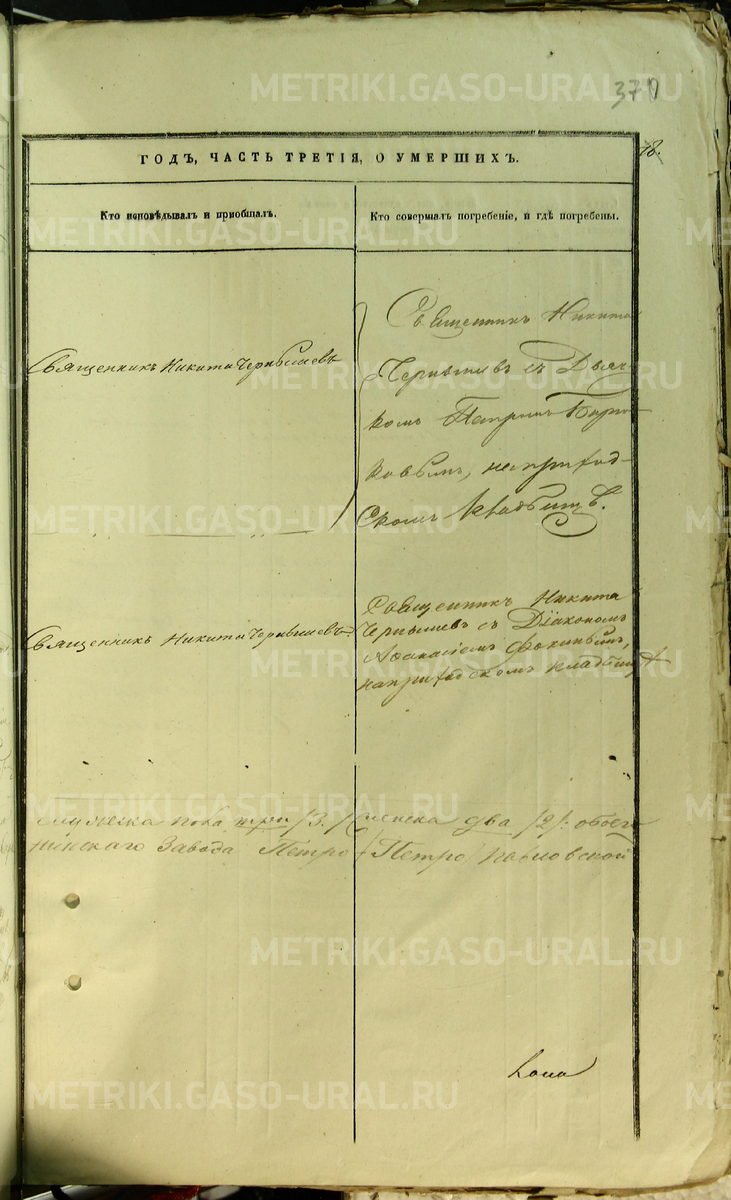 370
18.
ГОДЪ, ЧАСТЬ ТРЕТІЯ, О УМЕРШИХЪ.
Кто исповѣдывалъ и пріобщалъ.
Кто совершалъ погребеніе, и гдѣ погребены.
Священникъ Никита Чернышевъ
Священникъ Никита
Чернышевъ съ Дьяч-
комъ Петромъ
ковымъ, на приход-
скомъ кладбищѣ.
Священникъ Никита Чернышевъ
Священникъ Никита
Чернышевъ съ Діакономъ
Аѳанасіемъ Фокинымъ,
на приходскомъ кладбищѣ
мужеска пола три /3./
нинскаго Завода Петро
женска два /2/: обоего
Петро Павловской
METRIKI.GASO-URAL.RU